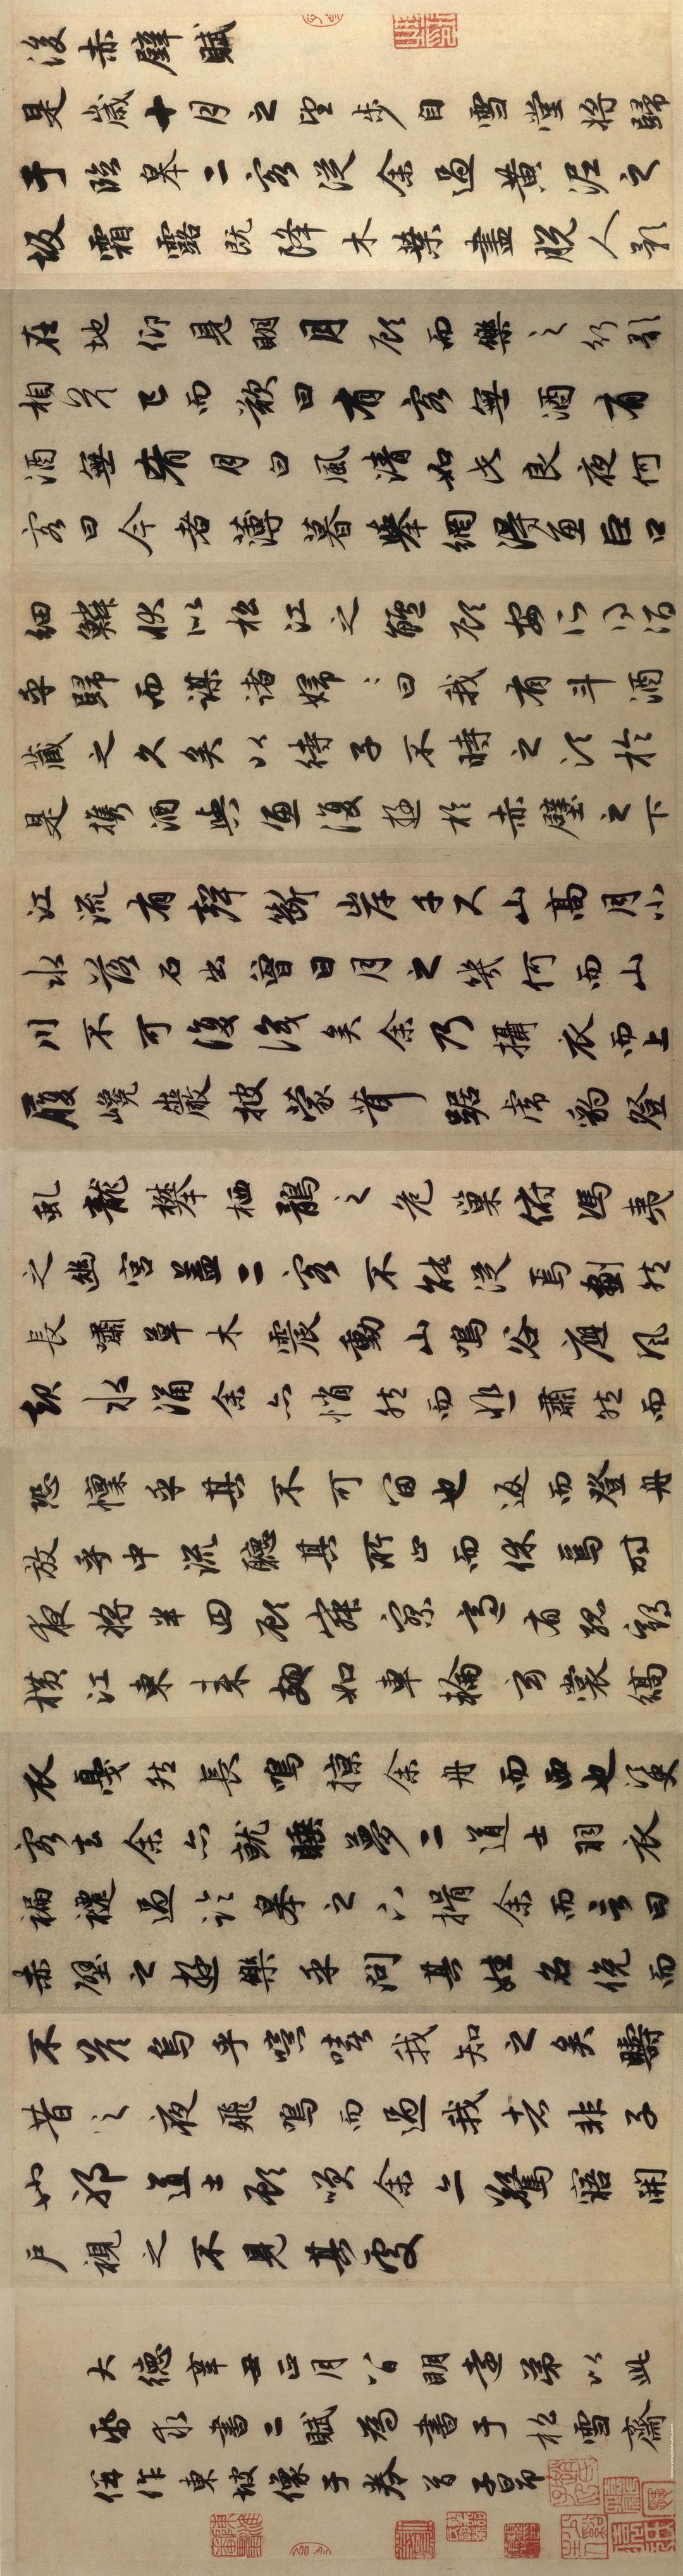 後赤壁賦
是歲十月之望步自雪堂將歸
于臨皋二客從余過黃泥之
坂霜露既降木葉盡脫人影
在地仰見明月顧而樂之行歌
相答已而歎曰有客無酒有
酒無肴月白風清如此良夜何
客曰今者薄暮舉網得魚巨口
細鱗狀似松江之鱸顧安所得酒
乎歸而謀諸婦〻曰我有斗酒
藏之久矣以待子不時之須於
是攜酒與魚復遊於赤壁之下
江流有聲斷岸千尺山高月小
水落石出曾日月之幾何而山
川不可復識矣余乃攝衣而上
履巉巖披蒙茸踞虎豹登
虬龍攀栖鶻之危巢俯馮夷
之幽宮蓋二客不能從焉劃然
長嘯草木震動山鳴谷應風
起水涌余亦悄然而悲肅然而
恐懍乎其不可留也返而登舟
放乎中流聽其所止而休焉時
夜將半四顧寂寥適有孤鶴
橫江東來翅如車輪玄裳縞
衣戛然長鳴掠余舟而西也須臾
客去余亦就睡夢二道士羽衣
蹁躚過臨皋之下揖余而言曰
赤壁之遊樂乎問其姓名俛而
不答嗚乎噫嘻我知之矣疇
昔之夜飛鳴而過我者非子
也耶道士顧笑余亦驚寤開
戶視之不見其處
大德辛丑正月八日明遠弟以此
紙求書二賦為書于松雪齋
併作東坡像于卷首子昂